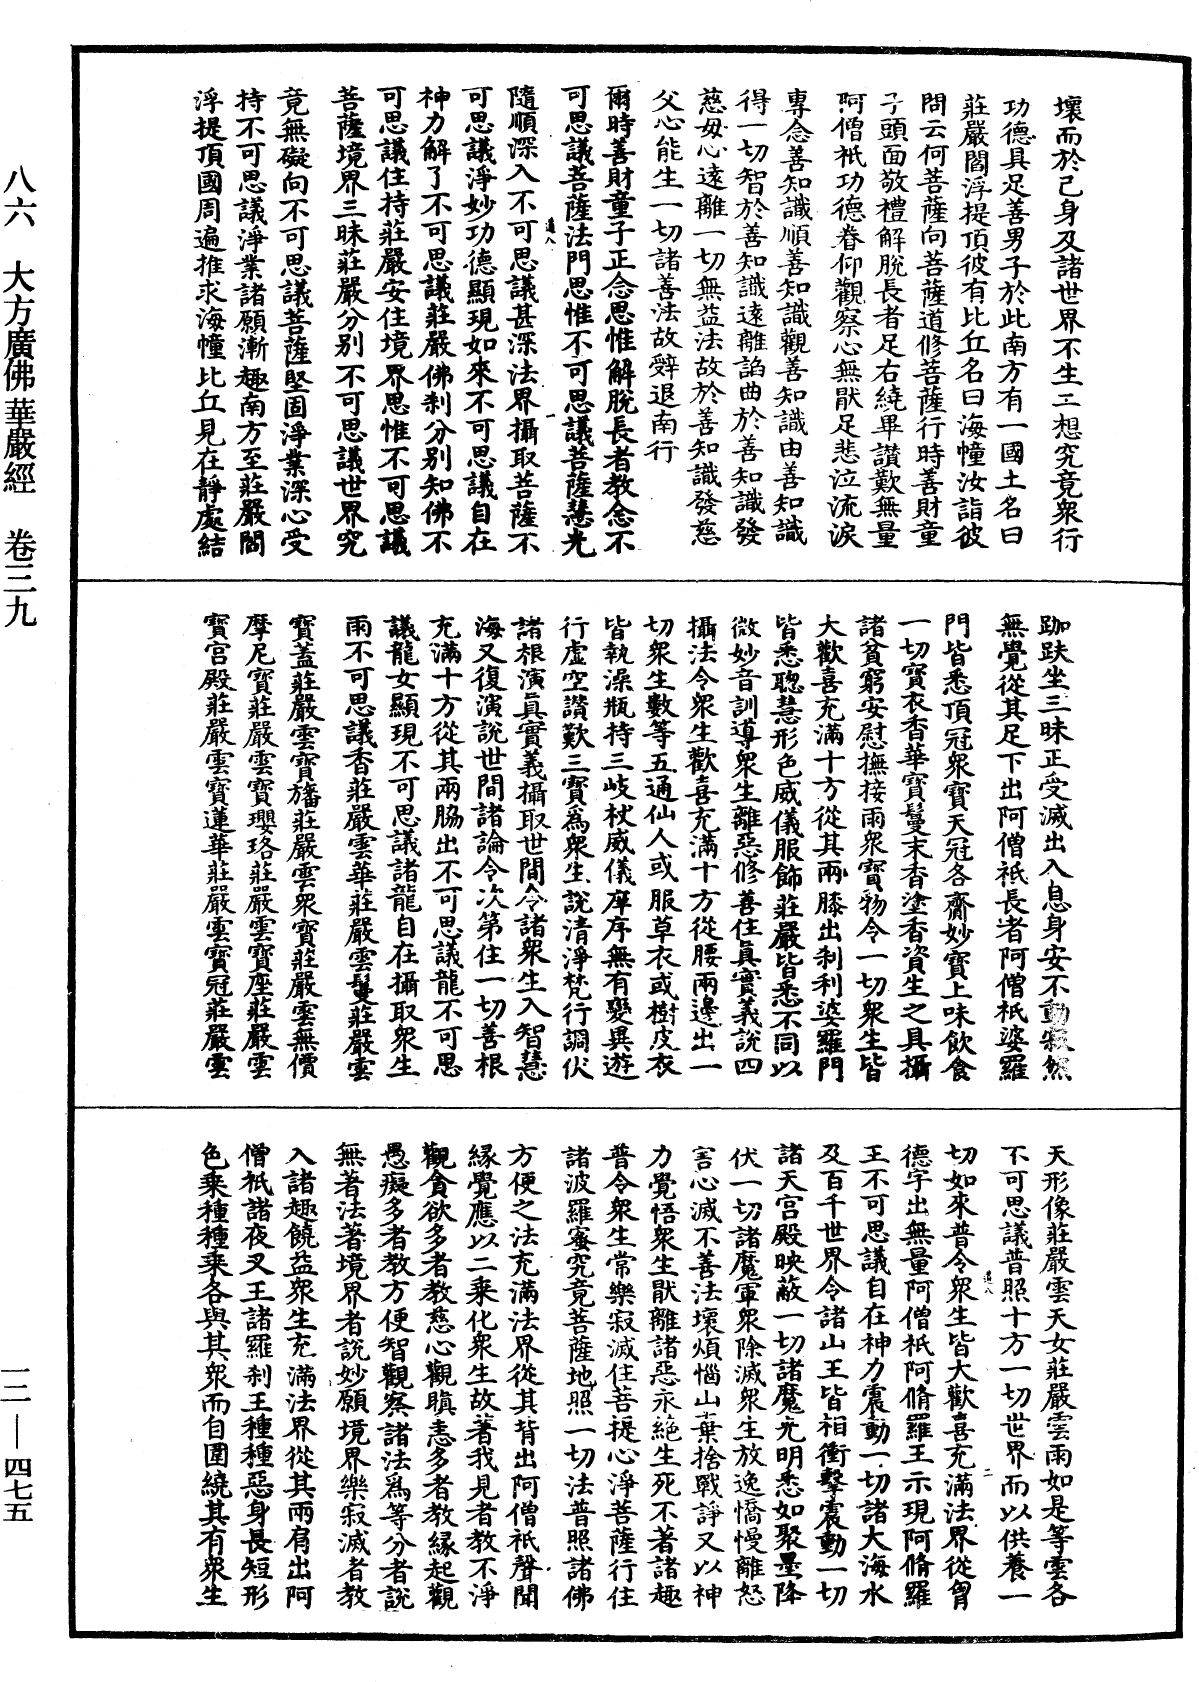 壞而於己身及諸世界不生二想究竟衆行
功德具足善男子於此南方有一國土名曰
莊嚴閻浮提頂彼有比丘名曰海幢汝詣彼
問云何菩薩向菩薩道修菩薩行時善財童
子頭面敬禮解脫長者足右繞畢讚歎無量
阿僧祇功德眷仰觀察心無猒足悲泣流淚
專念善知識順善知識觀善知識由善知識
得一切智於善知識遠離諂曲於善知識發
慈母心遠離一切無益法故於善知識發慈
父心能生一切諸善法故辭退南行
爾時善財童子正念思惟解脫長者教念不
可思議菩薩法門思惟不可思議菩薩慧光
隨順深入不可思議甚深法界攝取菩薩不
可思議淨妙功德顯現如來不可思議自在
神力解了不可思議莊嚴佛剎分別知佛不
可思議住持莊嚴安住境界思惟不可思議
菩薩境界三昧莊嚴分別不可思議世界究
竟無礙向不可思議菩薩堅固淨業深心受
持不可思議淨業諸願漸趣南方至莊嚴閻
浮提頂國周遍推求海幢比丘見在靜處結
跏趺坐三昧正受滅出入息身安不動寂然
無覺從其足下出阿僧祇長者阿僧祇婆羅
門皆悉頂冠衆寶天冠各齎妙寶上味飲食
一切寶衣香華寶鬘末香塗香資生之具攝
諸貧窮安慰撫接雨衆寶物令一切衆生皆
大歡喜充滿十方從其兩膝出剎利婆羅門
皆悉聰慧形色威儀服飾莊嚴皆悉不同以
微妙音訓導衆生離惡修善住真實義說四
攝法令衆生歡喜充滿十方從腰兩邊出一
切衆生數等五通仙人或服草衣或樹皮衣
皆執澡瓶持三岐杖威儀庠序無有變異遊
行虛空讚歎三寶爲衆生說清淨梵行調伏
諸根演真實義攝取世間令諸衆生入智慧
海又復演說世間諸論令次第住一切善根
充滿十方從其兩脇出不可思議龍不可思
議龍女顯現不可思議諸龍自在攝取衆生
雨不可思議香莊嚴雲華莊嚴雲鬘莊嚴雲
寶蓋莊嚴雲寶旛莊嚴雲衆寶莊嚴雲無價
摩尼寶莊嚴雲寶瓔珞莊嚴雲寶座莊嚴雲
寶宮殿莊嚴雲寶蓮華莊嚴雲寶冠莊嚴雲
天形像莊嚴雲天女莊嚴雲雨如是等雲各
不可思議普照十方一切世界而以供養一
切如來普令衆生皆大歡喜充滿法界從胷
德字出無量阿僧祇阿脩羅王示現阿脩羅
王不可思議自在神力震動一切諸大海水
及百千世界令諸山王皆相衝擊震動一切
諸天宮殿映蔽一切諸魔光明悉如聚墨降
伏一切諸魔軍衆除滅衆生放逸憍慢離怒
害心滅不善法壞煩惱山棄捨戰諍又以神
力覺悟衆生猒離諸惡永絕生死不著諸趣
普令衆生常樂寂滅住菩提心淨菩薩行住
諸波羅蜜究竟菩薩地照一切法普照諸佛
方便之法充滿法界從其背出阿僧祇聲聞
緣覺應以二乘化衆生故著我見者教不淨
觀貪欲多者教慈心觀瞋恚多者教緣起觀
愚癡多者教方便智觀察諸法爲等分者說
無著法著境界者說妙願境界樂寂滅者教
入諸趣饒益衆生充滿法界從其兩肩出阿
僧祇諸夜叉王諸羅剎王種種惡身長短形
色乘種種乘各與其衆而自圍繞其有衆生
八六　大方廣佛華嚴經　卷三九
一二—四七五